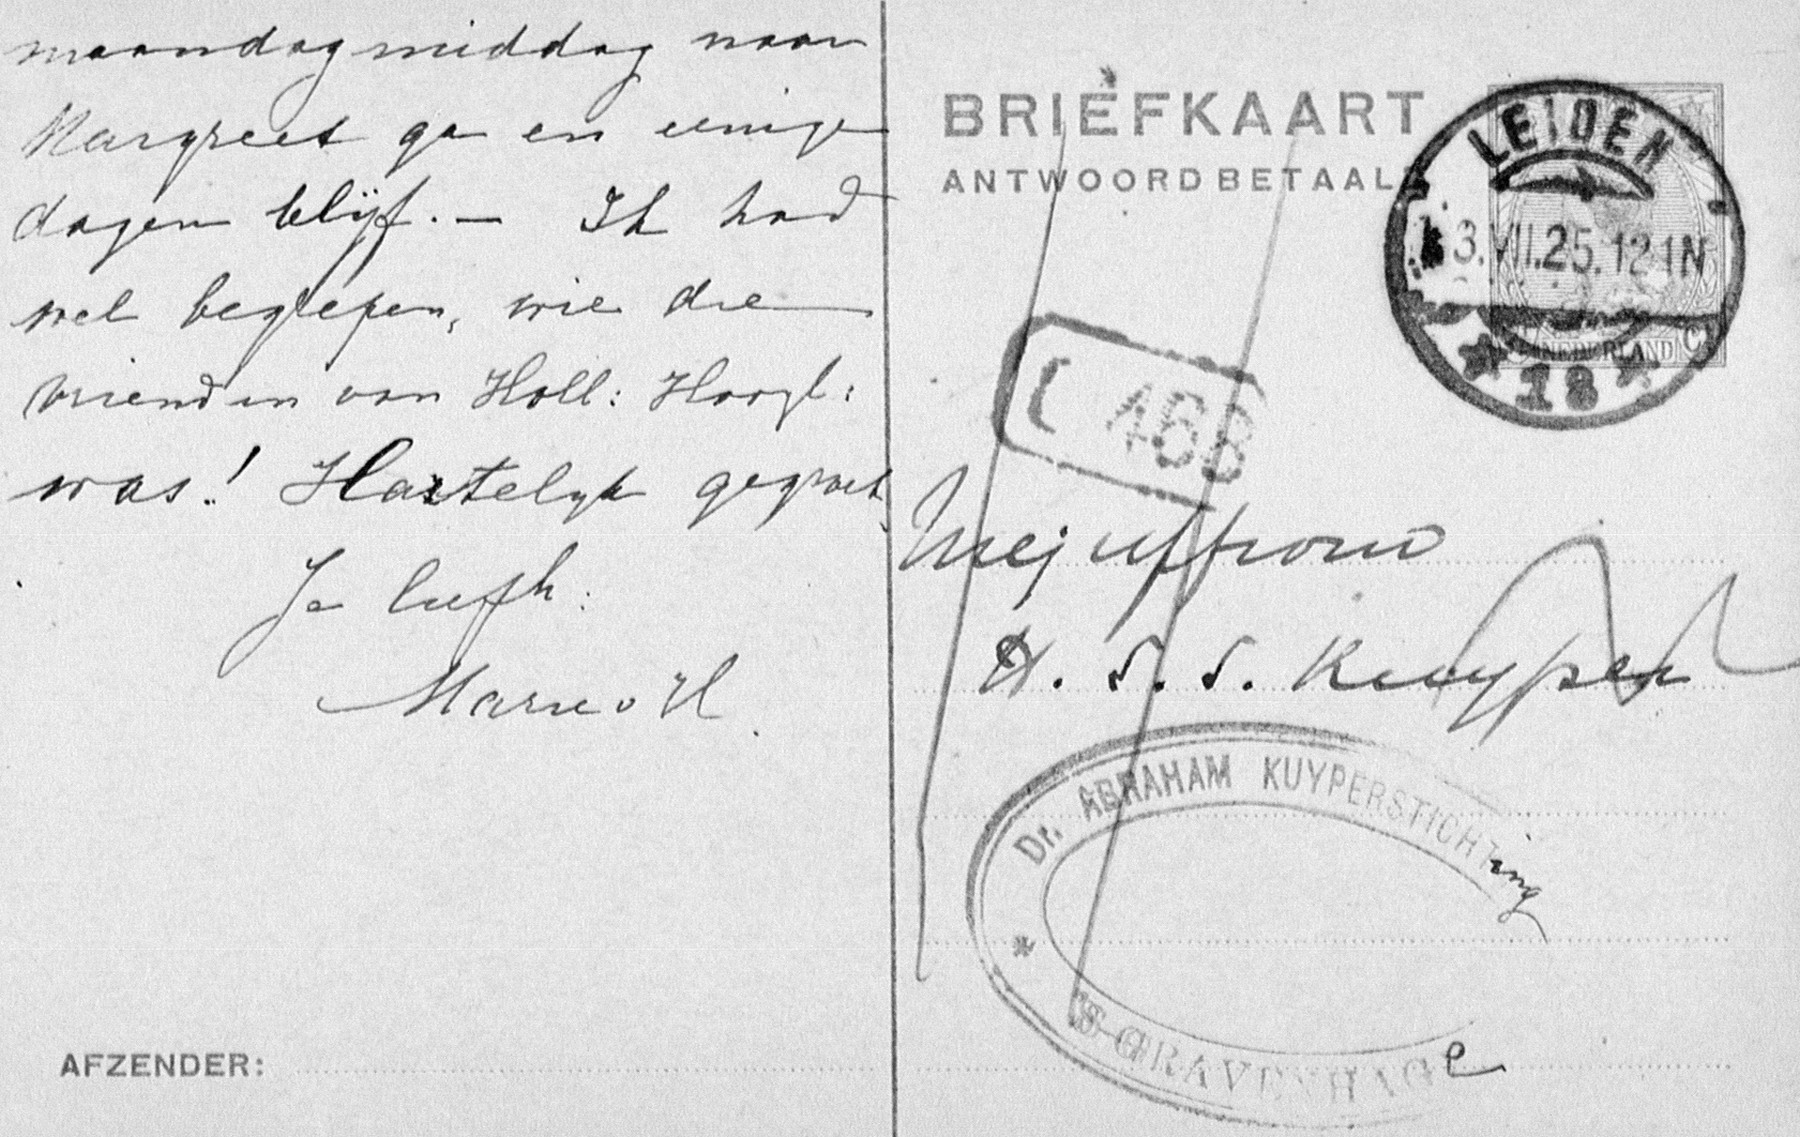 maandagmiddag naar
Margreet ga en eenige
dagen blijf. — Ik had
wel begrepen, wie die
vrienden van Holl: Hoogl:
was! Hartelijk gegroet
Je liefh:
Marie v H.
AFZENDER:
BRIEFKAART
ANTWOORD BETAALD
LEIDEN
3.VII.25.12-1N
18
NEDERLAND
C 468
Mejuffrouw
H. S. S. Kuyper
Dr. ABRAHAM KUYPERSTICHTing
'S-GRAVENHAGe